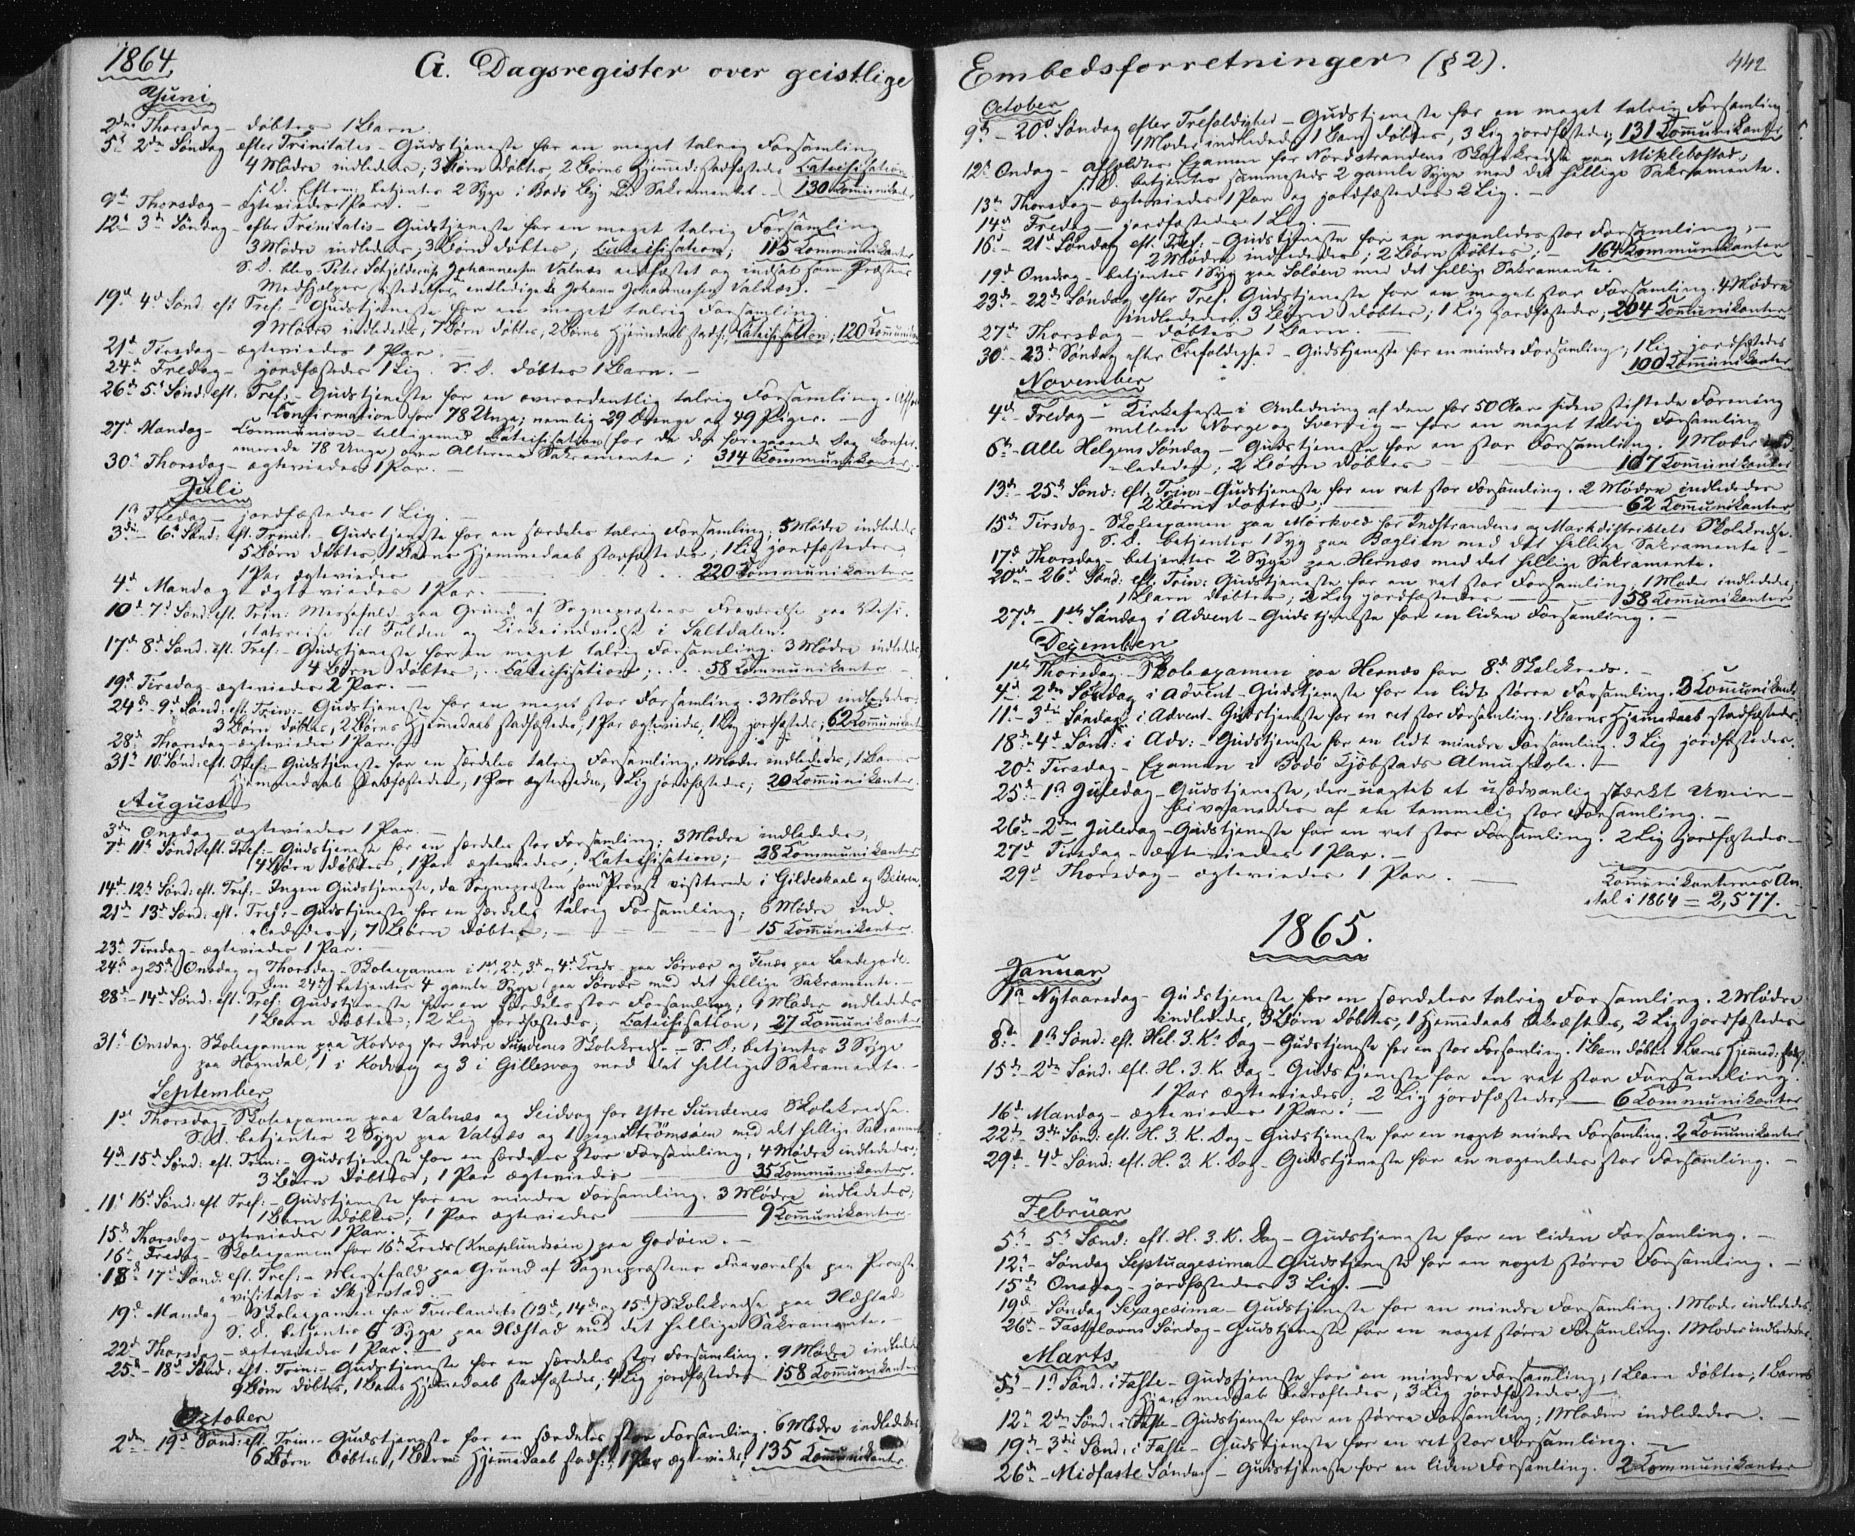 1864.
G. Dagsregister over geistlige
Juni
2den Thorsdag - døbtes 1 Barn.
5t 2den Søndag efter Trinitatis - Gudstjeneste for en meget talrig Forsamling
4 Mødre indledede; 3 Børn døbtes, 2 Børns Hjemmed: stadfæstedes Catechisation
s. D. Efterm: betjentes 2 Syge i Bodø By D. Sakramentet. - 130 Kommunikanter
9d Thorsdag - ægteviedes 1 Par. -
12t 3d Søndag - efter Trinitatis - Gudstjeneste for en meget talrig Forsamling
3 Mødre indledede, 3 Børn døbtes; Catechisation; 115 Kommunikanter
S. D. blev Peter Johannesen Valnæs og indsat som Præstens
Medhjelper istedetfor entledigede Johan Johannessen Valnæs. -
19d 4d Sønd. eft Tref. - Gudstjeneste for en meget talrig Forsamling.
9 Mødre indledede, 7 Børn døbtes, 2 Børns Hjemmedaab stadf:; Catechisation; 120 Kommunikanter
21d Tirsdag - ægteviedes 1 Par. -
24d Fredag - jordfæstedes 1 Lig. S. D. døbtes 1 Barn. -
26d 5t Sønd. eft. Tref: - Gudstjeneste for en overordentlig talrig Forsamling.
Confirmation for 78 Unge; nemlig 29 Drenge og 49 Piger. -
27d Mandag - Communion - tilligemed Catechisation for de den foregaaende Dag konfir-
merede 78 Unge, over Alterens Sakramente; 314 Kommunikanter.
30t Thorsdag - ægteviedes 1 Par. -
Juli
1st Fredag - jordfæstedes 1 Lig. -
3die - 6t Sønd: eft. Trinit. - Gudstjeneste for en særdeles talrig Forsamling; 5 Mødre indledede
5 Børn døbtes, 1 Barns Hjemmedaab stadfæstedes, 1 Lig jordfæstedes,
1 Par ægteviedes - 220 Kommunikanter
4d Mandag ægteviedes 1 Par. -
10d 7d Sønd. eft. Trin: Messefald paa Grund af Sognepræstens Fraværelse paa Visi-
tatsreise til Folden og Kirkeindvielse i Saltdalen.
17d 8d Sønd. eft. Tref: - Gudstjeneste for en meget talrig Forsamling. 3 Mødre indledede
4 Børn døbtes; Catechisation; 58 Kommunikanter
19d Tirsdag - ægteviedes 2 Par. -
24d - 9d Sønd: eft. Trin: - Gudstjeneste for en meget stor Forsamling. 3 Mødre indledede;
3 Børn døbtes, 2 Børns Hjemmedaab stadfæstedes, 1 Par ægteviedes, 1 Lig jordfæstedes; 62 Kommunikanter
28d Thorsdag ægteviedes 1 Par.
31t 10d Sønd: eft. Tref: - Gudstjeneste for en særdeles talrig Forsamling, 1 Moder indlededes, 1 Barns
Hjemmedaab stadfæstedes, 1 Par ægteviedes, 1 Lig jordfæstedes; 20 Kommunikanter
August
3de Onsdag - ægteviedes 1 Par. -
7d 11t Sønd: eft. Tref: - Gudstjeneste for en særdeles stor Forsamling; 3 Mødre indledede;
4 Børn døbtes, 1 Par ægteviedes, Catechisation; 28 Kommunikanter
14d - 12t Sønd: eft. Tref: - Ingen Gudstjeneste, da Sognepræsten som Provst visiterede i Gildeskaal og Beieren.
21d - 13d Sønd: eft. Tref: - Gudstjeneste for en særdeles talrig Forsamling; 6 Mødre ind-
lededes; 7 Børn døbtes; - 15 Kommunikanter.
23d Tirsdag - ægteviedes 1 Par. -
24d og 25d) Onsdag og Thorsdag - Skoleexamen i 1st, 2d, 3d og 4d Kreds paa Sørvær og Fenæs paa Landegode.
den 24d) betjentes 4 gamle Syge paa Sørvær med det hellige Sakramente. -
28d - 14d Sønd: eft. Tref: Gudstjeneste for en særdeles stor Forsamling; 1 Moder indledede
1 Barn døbtes; 2 Lig jordfæstedes; Catechisation; 27 Kommunikanter
31t Onsdag. Skoleexamen paa Kodvog for Indre Sundenes Skolekreds. - S. D: betjentes 3 Syge
paa Høgndal, 1 i Kodvaag og 3 i Gillesvog med det hellige Sakramente. -
September
1st Thorsdag. Skoleexamen paa Valnæs og Seidvog for Ytre Sundenes Skolekreds.
S. D. betjentes 2 Syge paa Valnæs og 1 paa Strømsøen med det hellige Sakramente
4d - 15d Sønd: eft. Trin: - Gudstjeneste for en særdeles stor Forsamling; 4 Mødre indledede;
3 Børn døbtes; 1 Par ægteviedes - 35 Kommunikanter.
11t 16d Sønd: eft Tref: - Gudstjeneste for en mindre Forsamling. 3 Mødre indledede;
1 Barn døbtes; 1 Par ægteviedes - 9 Kommunikanter.
15d Thorsdag - ægteviedes 1 Par. -
16t Fredag - Skoleexamen for 16d Kreds (Knaplundsøen) paa Godøen. -
18d 17d Sønd: eft. Tref: - Messefald paa Grund af Sognepræstens Fraværelse paa Provste-
visitats i Skjerstad. -
19d Mandag - Skoleexamen for Tverlandets (13d, 14d og 15d) Skolekredse paa Næstad
S. D. betjentes 6 Syge paa Næstad med det hellige Sakramente. -
22d Thorsdag - ægteviedes 1 Par. -
25d - 18d Sønd: eft. Trin: - Gudstjeneste for en særdeles stor Forsamling. 9 Mødre indledede
9 Børn døbtes, 1 Barns Hjemmedaab stadfæstedes, 4 Lig jordfæstedes - 158 Kommunikanter
October
2den - 19d Sønd: eft. Trin: - Gudstjeneste for en særdeles stor Forsamling. 6 Mødre indledede
6 Børn døbtes, 1 Barns Hjemmedaab stadf:; 1 Par ægteviedes; 135 Kommunikanter
Embedsforretninger (§2).
442
October
9d - 20d Søndag efter Trefoldighed - Gudstjeneste for en meget talrig Forsamling
1 Moder indledede, 1 Barn døbtes, 3 Lig jordfæstedes; 131 Kommunikanter
12t Onsdag - afholdtes Examen for Nordstrandens Skolekreds paa Miklebostad;
S. D. betjentes sammesteds 2 gamle Syge med det hellige Sakramente.
13d Thorsdag - ægteviedes 1 Par og jordfæstedes 2 Lig. -
14d Fredag - jordfæstedes 1 Lig. -
16d - 21d Søndag eft. Tref: - Gudstjeneste for en nogenledes stor Forsamling; -
2 Mødre indledede; 2 Børn døbtes; - 164 Kommunikanter
19d Onsdag - betjentes 1 Syg paa Soløen med det hellige Sakramente.
23d - 22d Søndag efter Tref. Gudstjeneste for en meget stor Forsamling. 4 Mødre
indledede; 3 Børn døbtes; 1 Lig jordfæstedes; 204 Kommunikanter
27d Thorsdag - døbtes 1 Barn. -
30t - 23d Søndag efter Trefoldighed - Gudstjeneste for en mindre Forsamling; 1 Lig jordfæstedes
100 Kommunikanter
November
4d Fredag - Kirkefest - i Anledning af den for 50 Aar siden stiftede Forening
mellem Norge og Sverrig - for en meget talrig Forsamling
6t - Alle Helgens Søndag - Gudstjeneste for en stor Forsamling. 1 Moder ind-
lededes; 2 Børn døbtes - 107 Kommunikanter
13d - 25d Sønd: eft. Trin: - Gudstjeneste for en ret stor Forsamling. 2 Mødre indledede
2 Børn døbtes; - 62 Kommunikanter
15d Tirsdag - Skoleexamen paa Mørkved for Indstrandens og Markdistriktets Skolekredse.
S. D. betjentes 1 Syg paa Boglien med det hellige Sakramente. -
17d Thorsdag - betjentes 2 Syge paa Hernæs med det hellige Sakramente.
20d - 26d Sønd: eft. Trin: Gudstjeneste for en ret stor Forsamling. 1 Moder indlededes;
1 Barn døbtes; 2 Lig jordfæstedes - 58 Kommunikanter
27d - 1ste Søndag i Advent - Gudstjeneste for en liden Forsamling. -
Dezember
1ste Thorsdag. Skoleexamen paa Hernæs for 8d Skolekreds. -
4d - 2den Søndag i Advent - Gudstjeneste for en lidt større Forsamling. 3 Kommunikant.
11t - 3die Søndag i Advent - Gudstjeneste for en ret stor Forsamling. 1 Barns Hjemmedaab stadfæstedes.
18d - 4d Sønd: i Adv: - Gudstjeneste for en lidt mindre Forsamling. 3 Lig jordfæstedes.
20d Tirsdag - Examen i Bodø Kjøbstads Almuskole. -
25d - 1st Juledag - Gudstjeneste, der uagtet et usædvanlig stærkt Uveir -
bivaanedes af en temmelig stor Forsamling. -
26d - 2den Juledag - Gudstjeneste for en ret stor Forsamling. 2 Lig jordfæstedes -
27d Tirsdag - ægteviedes 1 Par. -
29d Thorsdag - ægteviedes 1 Par. -
Kommunikanternes An-
tal i 1864 = 2,577.
1865.
Januar
1st Nytaarsdag - Gudstjeneste for en særdeles talrig Forsamling. 2 Mødre
indledede, 3 Børn døbtes, 1 Hjemmedaab bekræftedes, 2 Lig jordfæstedes
8d - 1st Sønd: eft. Hel. 3. K. Dag - Gudstjeneste for en stor Forsamling. 1 Barn døbt. 1 Barns Hjemmed: stadf.
15d - 2den Sønd: eft. H. 3. K. Dag - Gudstjeneste for en ret stor Forsamling.
1 Par ægteviedes; 2 Lig jordfæstedes, - 6 Kommunikanter
16d Mandag - ægteviedes 1 Par. -
22d - 3die Sønd: eft. H. 3. K. Dag - Gudstjeneste for en noget mindre Forsamling. 2 Kommunikanter
29d - 4d Sønd: eft. H. 3. K. Dag - Gudstjeneste for en nogenledes stor Forsamling. -
Februar
5t - 5t Sønd: eft. H. 3. K. Dag - Gudstjeneste for en liden Forsamling. -
12t - Søndag Septuagesima - Gudstjeneste for en noget større Forsamling. -
15d Onsdag - jordfæstedes 3 Lig. -
19d - Søndag Sexagesima - Gudstjeneste for en mindre Forsamling. 1 Moder indlededes,
26d - Fastelavns Søndag - Gudstjeneste for en noget større Forsamling. 1 Moder indlededes
Marts
5t - 1st Sønd: i Faste - Gudstjeneste for en mindre Forsamling, 1 Barn døbtes, 1 Barns
Hjemmedaab bekræftedes, 3 Lig jordfæstedes. -
12t 2den Sønd: i Faste - Gudstjeneste for en større Forsamling; 1 Moder indlededes. -
19d - 3die Sønd: i Faste - Gudstjeneste for en ret stor Forsamling. -
26d - Midfaste Søndag - Gudstjeneste for en liden Forsamling. 2 Kommunikanter